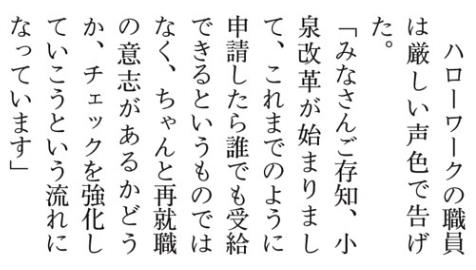 ハローワークの職員
は厳しい声色で告げ
た。
「みなさんご存知、小
泉改革が始まりまし
て、これまでのように
申請したら誰でも受給
できるというものでは
なく、ちゃんと再就職
の意志があるかどう
か、チェックを強化し
ていこうという流れに
なっています」